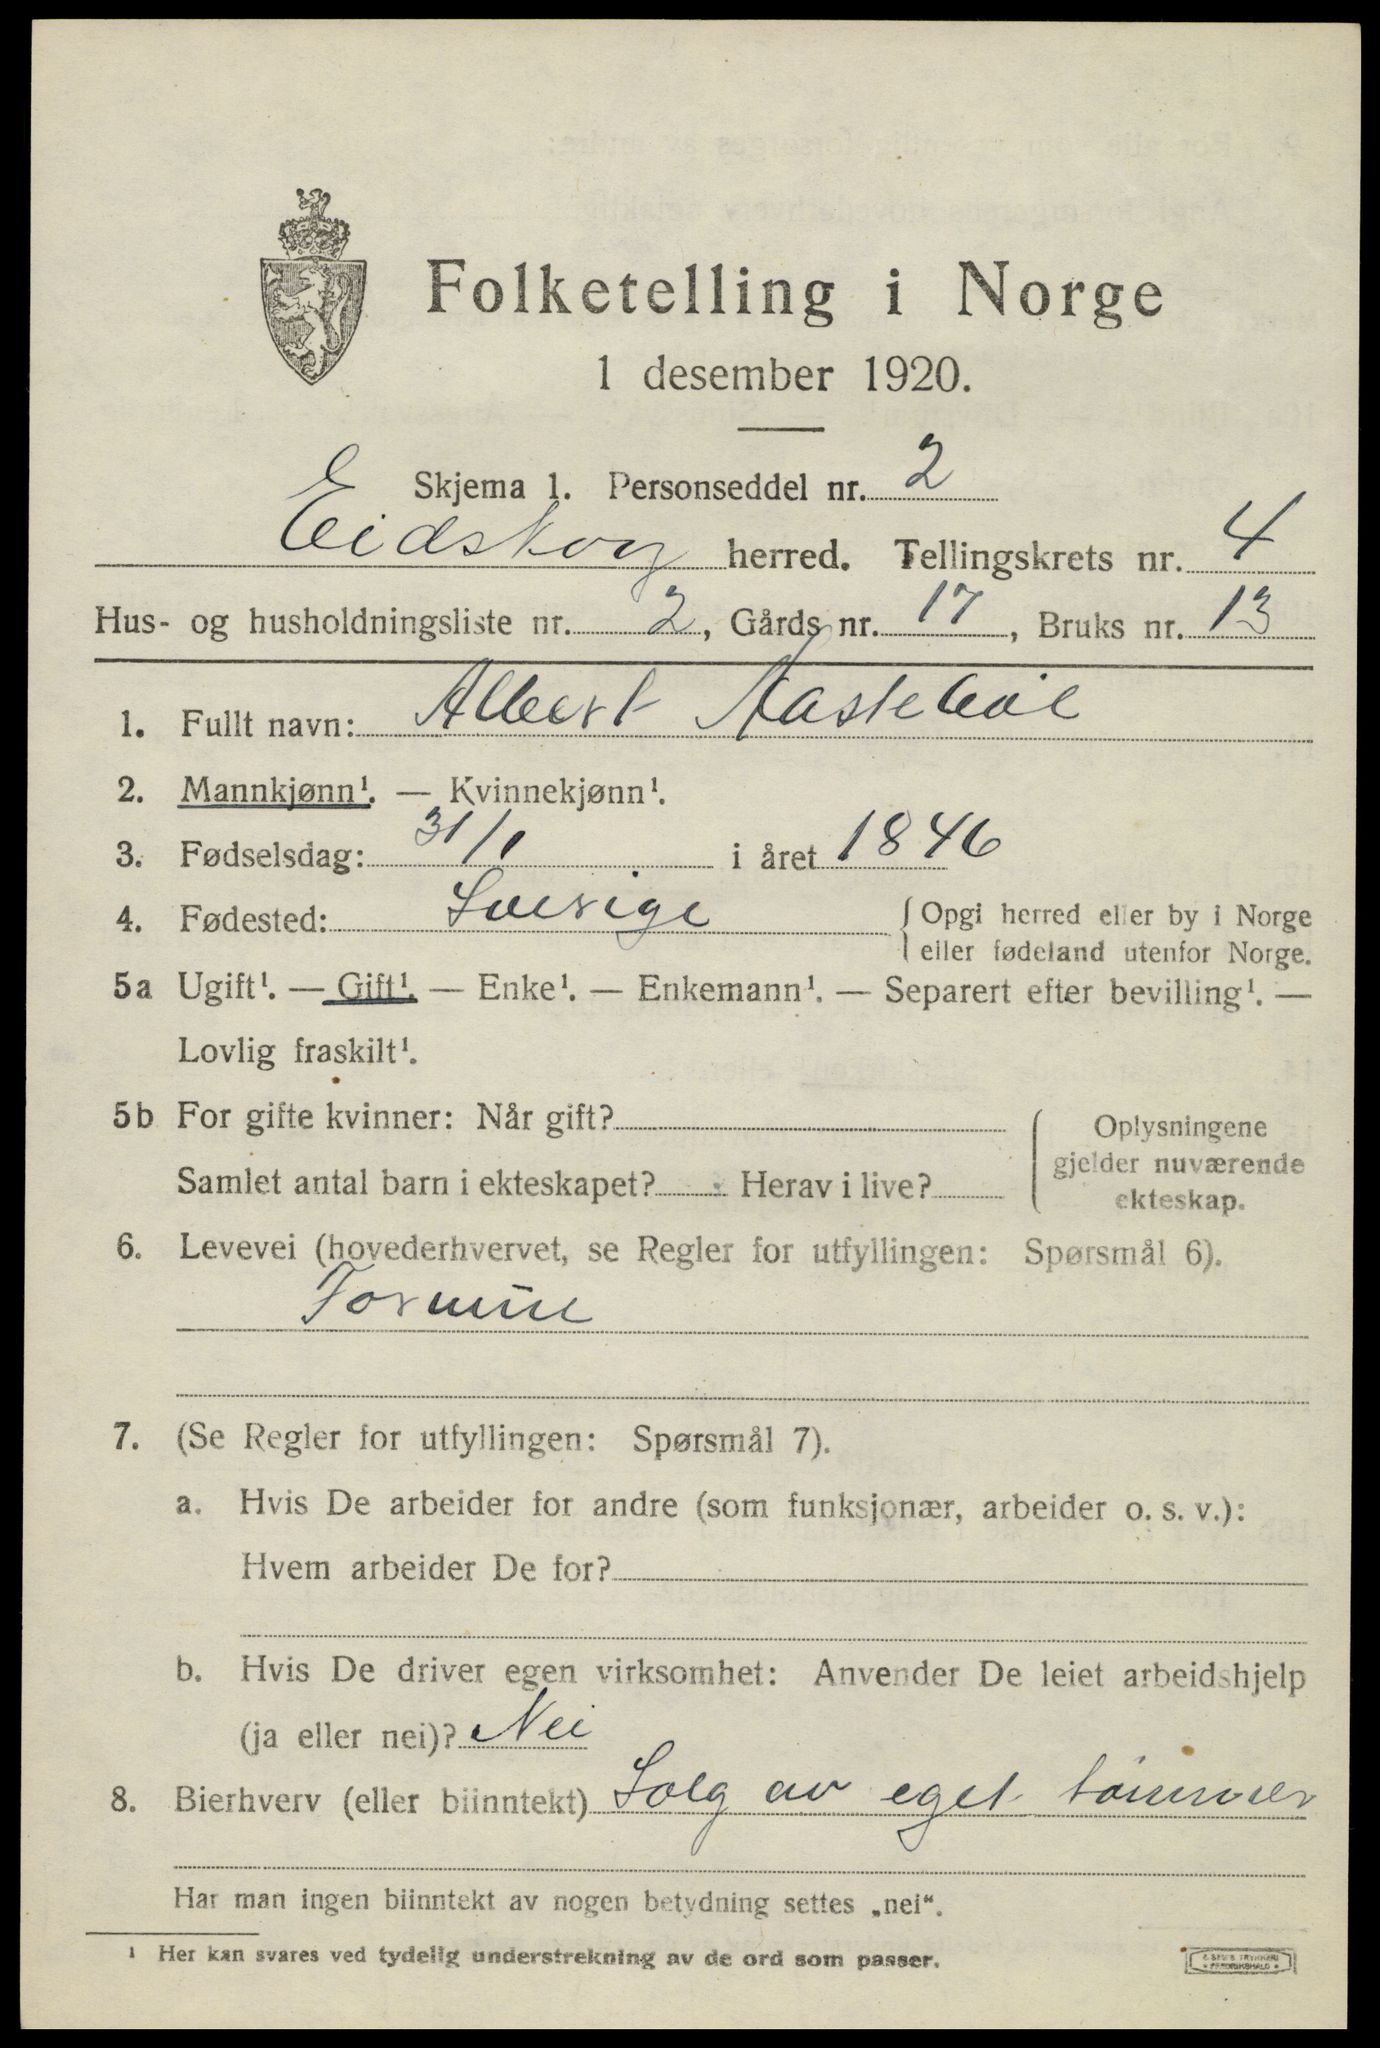 Folketelling i Norge
1 desember 1920.
Skjema 1. Personseddel nr. 2
Eidskog herred. Tellingskrets nr. 4
Hus- og husholdningsliste nr. 2, Gårds nr. 17, Bruks nr. 13
1. Fullt navn: Albert
2. Mannkjønn¹. — Kvinnekjønn¹.
3. Fødselsdag: 31/1 i året 1846
4. Fødested: Sverige {Opgi herred eller by i Norge
eller fødeland utenfor Norge.
5a Ugift¹. — Gift¹. — Enke¹. — Enkemann¹. — Separert efter bevilling¹. —
Lovlig fraskilt¹.
5b For gifte kvinner: Når gift?
Samlet antal barn i ekteskapet? Herav i live?
{Oplysningene
gjelder nuværende
ekteskap.
6. Levevei (hovederhvervet, se Regler for utfyllingen: Spørsmål 6).
Formue
7. (Se Regler for utfyllingen: Spørsmål 7).
a. Hvis De arbeider for andre (som funksjonær, arbeider o. s. v.):
Hvem arbeider De for?
b. Hvis De driver egen virksomhet: Anvender De leiet arbeidshjelp
(ja eller nei)? Nei
8. Bierhverv (eller biinntekt) Solg av eget tømmer
Har man ingen biinntekt av nogen betydning settes „nei“.
¹ Her kan svares ved tydelig understrekning av de ord som passer.